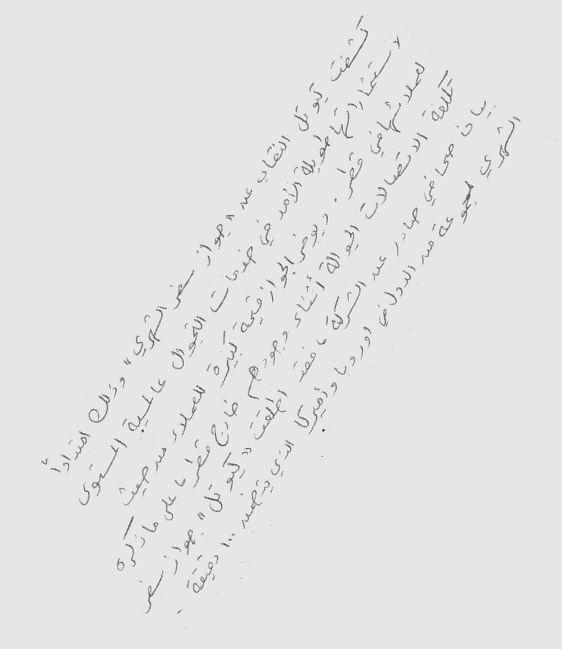 كشفت كيوتل النقاب عن "جواز سفر الشهري" وذلك امتداداً
لاستثماراتها طويلة الأمد في خدمات التجوال عالمية المستوى
لعملائها في قطر. ويوفر الجواز قيمة كبيرة للعملاء من حيث
تكلفة الاتصالات الجوالة أثناء وجودهم خارج قطر، على ما ذكره
بيان صحافي صادر عن الشركة، فقد أطلقت "كيوتل" جواز سفر
الشهري لمجموعة من الدول في أوروبا وأميركا الذي يتضمن ١٠٠ دقيقة.